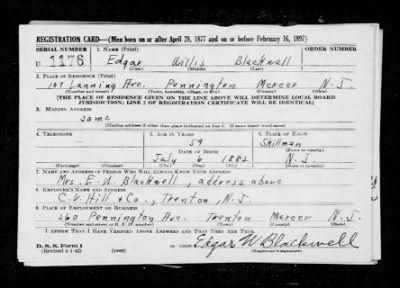 REGISTRATION CARD—(Men born on or after April 28, 1877 and on or before February 16, 1897)
SERIAL NUMBER 1. NAME (Print) ORDER NUMBER
U 1176 Edgar Willis Blackwell
(First) (Middle) (Last)
2. PLACE OF RESIDENCE (Print)
107 Lanning Ave. Pennington Mercer N. J.
(Number and street) (Town, township, village, or city) (County) (State)
[THE PLACE OF RESIDENCE GIVEN ON THE LINE ABOVE WILL DETERMINE LOCAL BOARD
JURISDICTION; LINE 2 OF REGISTRATION CERTIFICATE WILL BE IDENTICAL]
3. MAILING ADDRESS
same
(Mailing address if other than place indicated on line 2. If same insert word same)
4. TELEPHONE 5. AGE IN YEARS 6. PLACE OF BIRTH
— 59 Skillman
DATE OF BIRTH (Town or county)
July 6 1882 N. J.
(Exchange) (Number) (Mo.) (Day) (Yr.) (State or country)
7. NAME AND ADDRESS OF PERSON WHO WILL ALWAYS KNOW YOUR ADDRESS
Mrs. E. W. Blackwell, address above
8. EMPLOYER'S NAME AND ADDRESS
C. V. Hill & Co., Trenton, N. J.
9. PLACE OF EMPLOYMENT OR BUSINESS
360 Pennington Ave. Trenton Mercer N. J.
(Number and street or R. F. D. number) (Town) (County) (State)
I AFFIRM THAT I HAVE VERIFIED ABOVE ANSWERS AND THAT THEY ARE TRUE.
D. S. S. Form 1 Edgar W Blackwell
(Revised 4-1-42) (Registrant's signature)